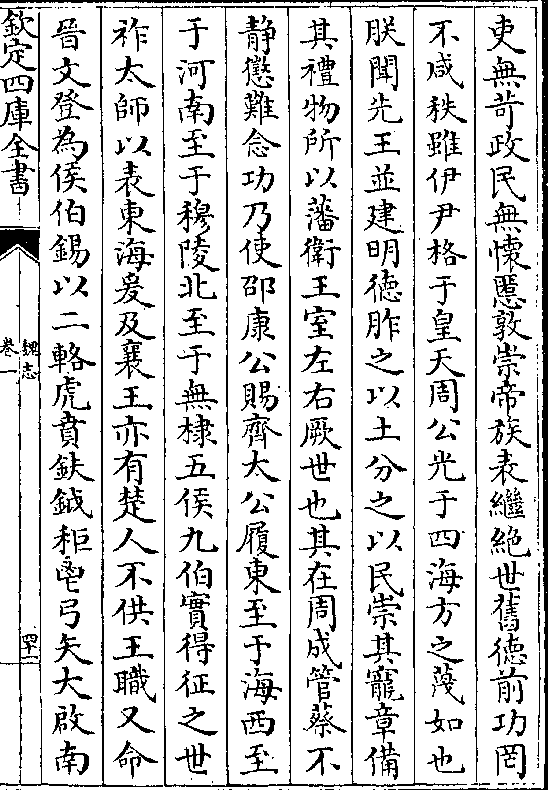 吏無苛政民無懷慝敦崇帝族表繼絕世舊德前功罔
不咸秩雖伊尹格于皇天周公光于四海方之蔑如也
朕聞先王並建明德胙之以土分之以民崇其寵章備
其禮物所以藩衛王室左右厥世也其在周成管蔡不
静懲難念功乃使邵康公賜齊太公履東至于海西至
于河南至于穆陵北至于無棣五侯九伯實得征之世
祚太師以表東海爰及襄王亦有楚人不供王職又命
晉文登為侯伯錫以二輅虎賁鈇鉞秬鬯弓矢大啟南
欽定四庫全書
魏志
卷一
四十一